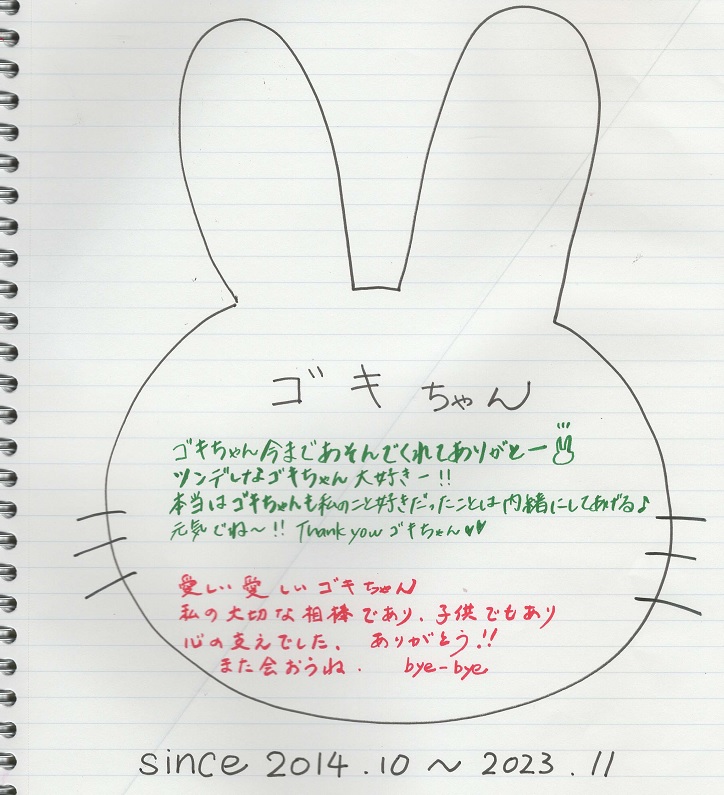 ゴキちゃん
ゴキちゃん今まであそんでくれてありがとー
ツンデレなゴキちゃん大好きー!!
本当はゴキちゃんも私のこと好きだったことは内緒にしてあげる♪
元気でね〜!! Thank you ゴキちゃん♥♥
愛しい愛しいゴキちゃん
私の大切な相棒であり、子供でもあり
心の支えでした、ありがとう!!
また会おうね. bye-bye
since 2014.10〜2023.11